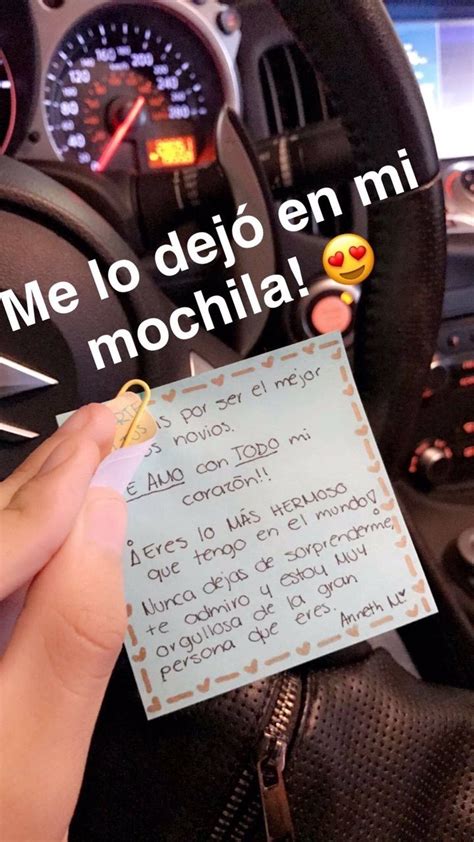 Me lo dejó en mi
mochila! 😍
por ser el mejor
novios.
AMO con TODO mi
corazón!!
¡Eres lo MÁS HERMOSO
que tengo en el mundo!
Nunca dejas de sorprenderme,
te admiro y estoy MUY
orgullosa de la gran
persona que eres.
Anneth M.